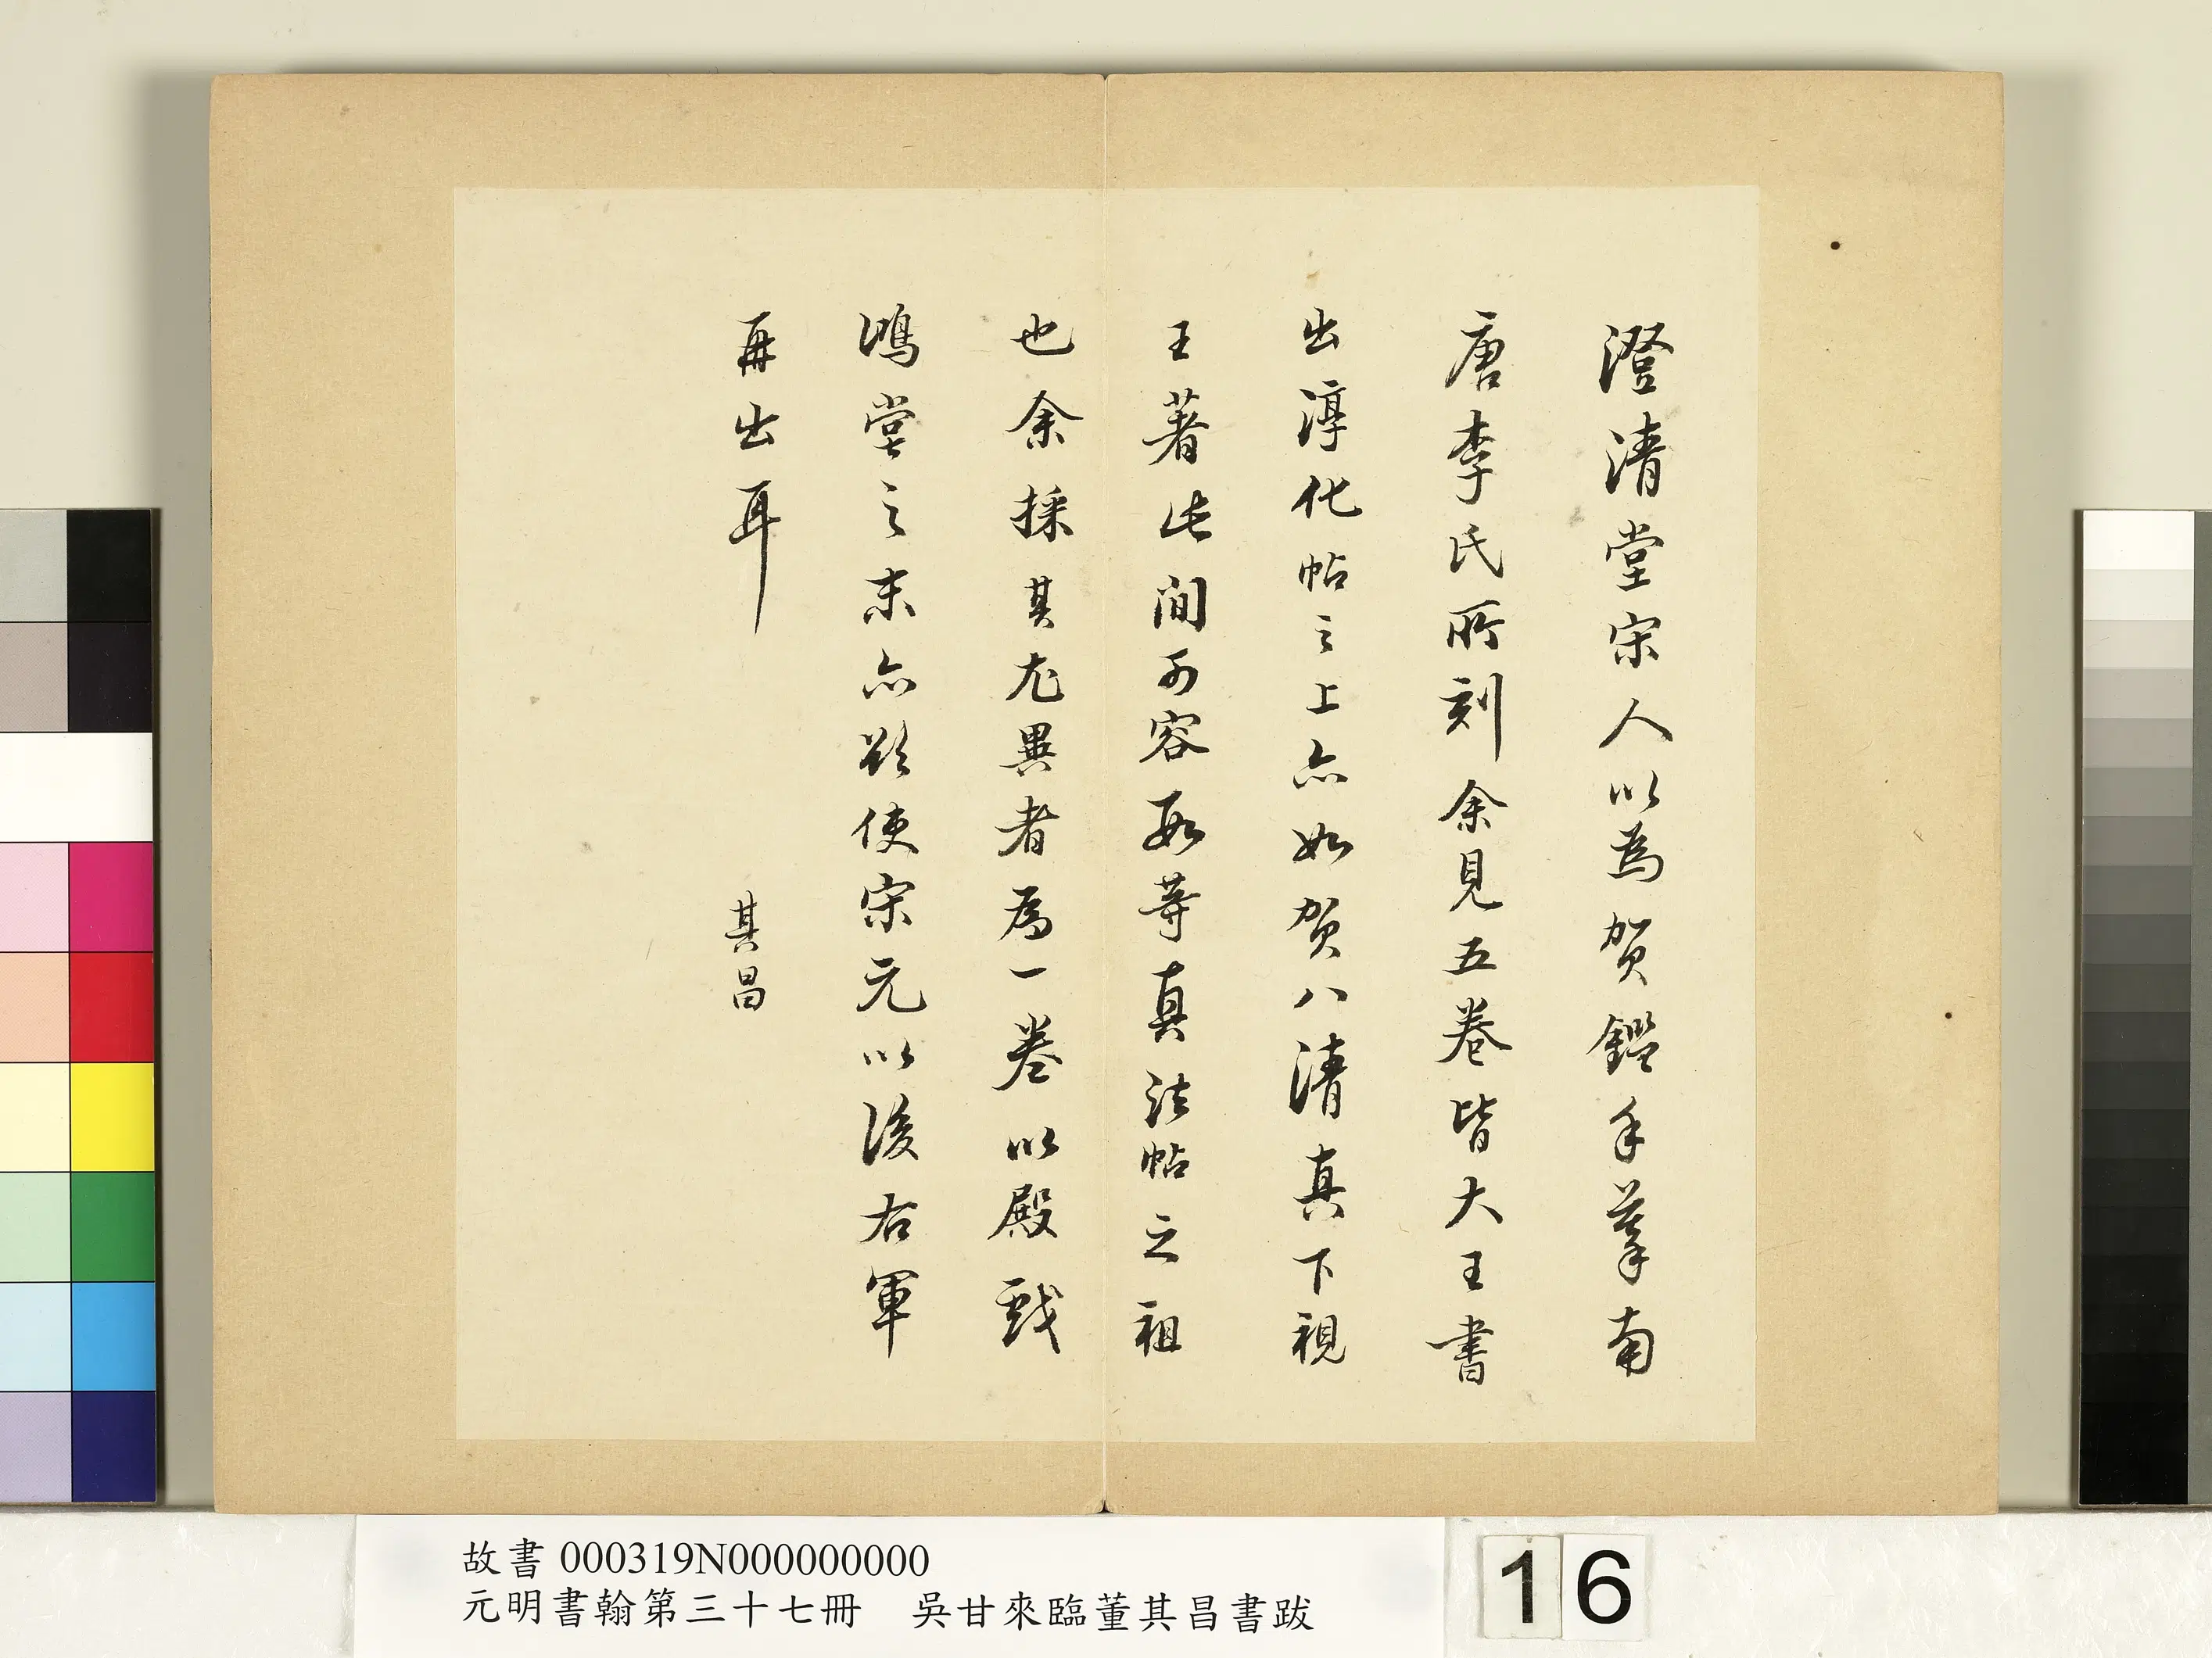 澄清堂宋人以為賀鑑手摹南
唐李氏所刻余見五卷皆大王書
出淳化帖之上亦如賀八清真下視
王著此間可容等真法帖之祖
也余採其尤異者為一卷以殿戲
鴻堂之末亦欲使宋元以後右軍
再出耳
其昌
故書 000319N000000000
元明書翰第三十七冊 吳甘來臨董其昌書跋
16